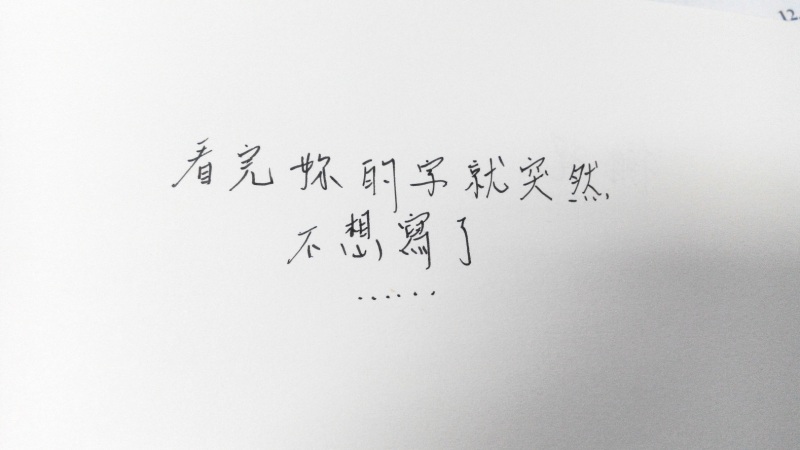 12.
看完妳的字就突然
不想寫了
......